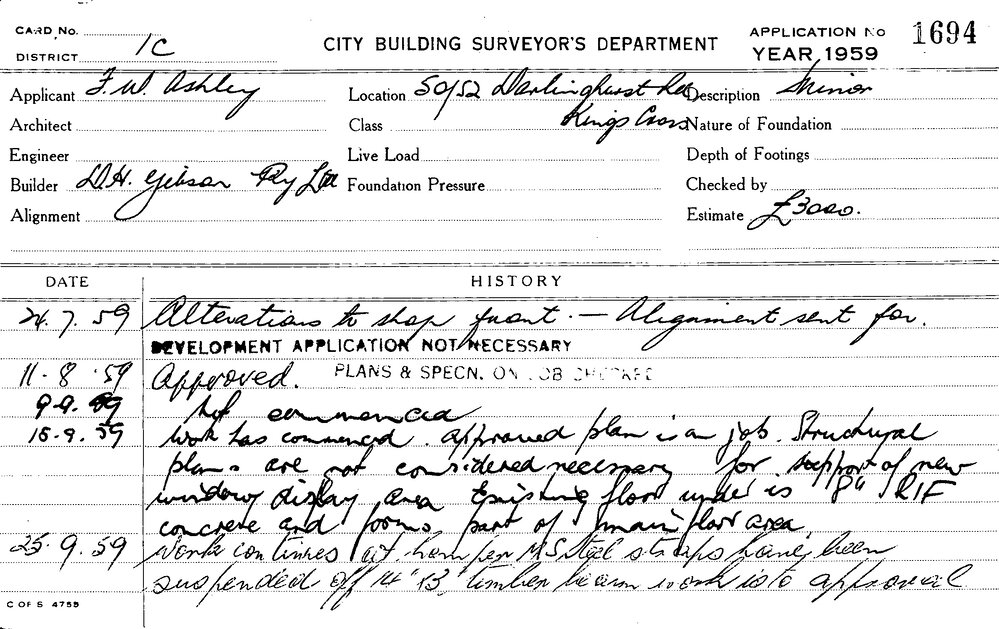 CARD No.
DISTRICT 1C
CITY BUILDING SURVEYOR'S DEPARTMENT
APPLICATION No 1694
YEAR, 1959
Applicant F. W. Ashley
Location 50/52 Darlinghurst Rd
Kings Cross
Description Minor
Architect
Class
Nature of Foundation
Engineer
Live Load
Depth of Footings
Builder D.H. Gibson Pty Ltd
Foundation Pressure
Checked by
Alignment
Estimate £3000.
DATE
HISTORY
24.7.59 Alterations to shop front. — Alignment sent for.
DEVELOPMENT APPLICATION NOT NECESSARY
11.8.59 Approved. PLANS & SPECN. ON JOB CHECKED
9.9.59 Not commenced
15.9.59 Work has commenced. approved plan is on job. Structural
plans are not considered necessary for support of new
window display area Existing floor under is 8" R/F
concrete and forms part of main floor area
25.9.59 Work continues M.S. Steel straps having been
suspended off 14" timber beam work is to approval
C OF S 4755